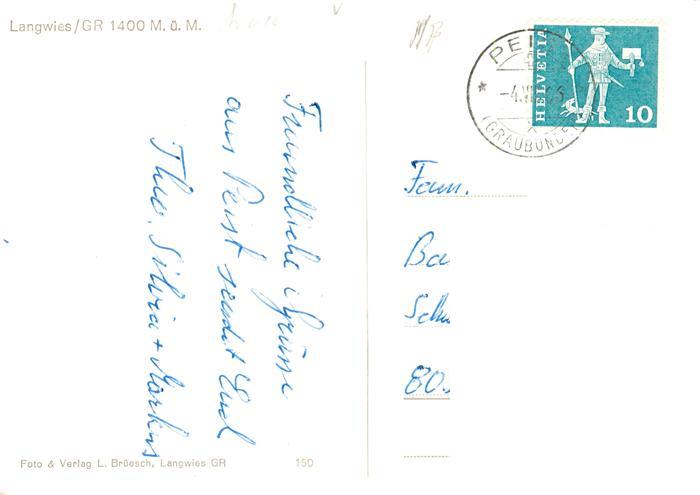 Langwies/GR 1400 M. ü. M.
Freundliche Grüsse
aus Peist sendet Euch
Theo, Silvia + Markus
Foto & Verlag L. Brüesch, Langwies GR
150
PEIST
(GRAUBÜNDEN)
HELVETIA
10
Fam.
Ba
Sch
80.